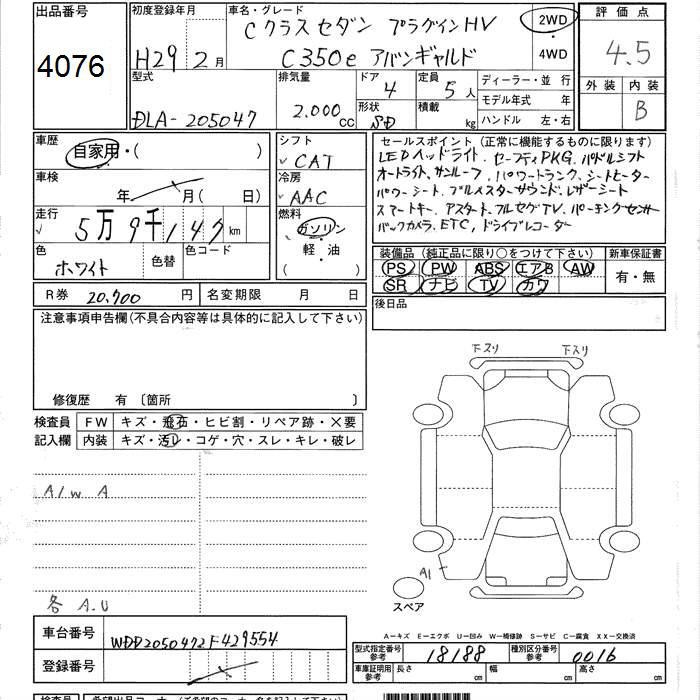 出品番号
4076
初度登録年月
H29年2月
車名・グレード
Cクラスセダン プラグインHV
C350e アバンギャルド
2WD
・
4WD
評価点
4.5
外装 内装
B
型式
DLA-205047
排気量
2.000cc
ドア
4
形状
SD
定員
5人
積載
kg
ディーラー・並行
モデル年式 年
ハンドル 左・右
車歴
自家用・( )
車検
年 月(日)
走行
5万9千147km
色
ホワイト
色替
色コード
シフト
CAT
冷房
AAC
燃料
ガソリン
・
軽・油
( )
セールスポイント(正常に機能するものに限ります)
LEDヘッドライト、セーフティPKG、パドルシフト
オートライト、サンルーフ、パワートランク、シートヒーター
パワーシート、ブルメスターサウンド、レザーシート
スマートキー、アスタート、フルセグTV、パーキングセンサー
バックカメラ、ETC、ドライブレコーダー
装備品(純正品に限り○をつけて下さい)
PS PW ABS エアB AW
SR ナビ TV カワ
新車保証書
有・無
後日品
R券 20,700円
名変期限 月 日
注意事項申告欄(不具合内容等は具体的に記入して下さい)
修復歴 有〔箇所 〕
検査員
記入欄
FW キズ・飛石・ヒビ割・リペア跡・×要
内装 キズ・汚レ・コゲ・穴・スレ・キレ・破レ
AlwA
各A.U
下スリ 下スリ
A1
スペア
車台番号
WDD2050472F429554
登録番号
A-キズ E-エクボ U-凹み W-補修跡 S-サビ C-腐食 XX-交換済
型式指定番号
参考
18188
種別区分番号
参考
0016
車庫証明用
参考
長さ 幅 高さ